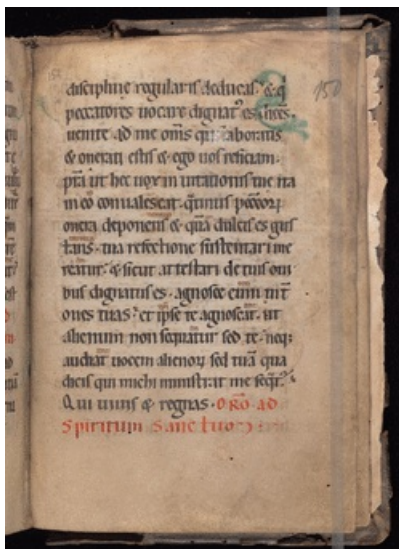 150
discipline regularis deducas. & q̄
peccatores uocare dignatꝰ es dicēs.
uenite ad me om̄s qui laboratis
& onerati estis & ego uos reficiam.
p̄sta ut hec uox inuitationis tue ita
in eo conualescat. q̄tinus peccoꝝ
onera deponens & quā dulcis es gus
tans. tua refectione sustentari me
reatur. & sicut attestari de tuis oui
bus dignatus es. agnosce eum int̄
oues tuas. et ipse te agnoscat. ut
alienum non sequatur sed te. neq;
audiat uocem alienoꝝ sed tuā qua
dicis qui michi ministrat me seqt̄ᷣ.
Qui uiuis & regnas. ORO ad
Spiritum Sanctum